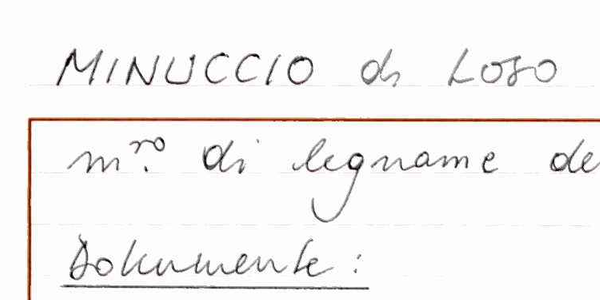 MINUCCIO di Loso
m.ro di legname de
Dokumente: